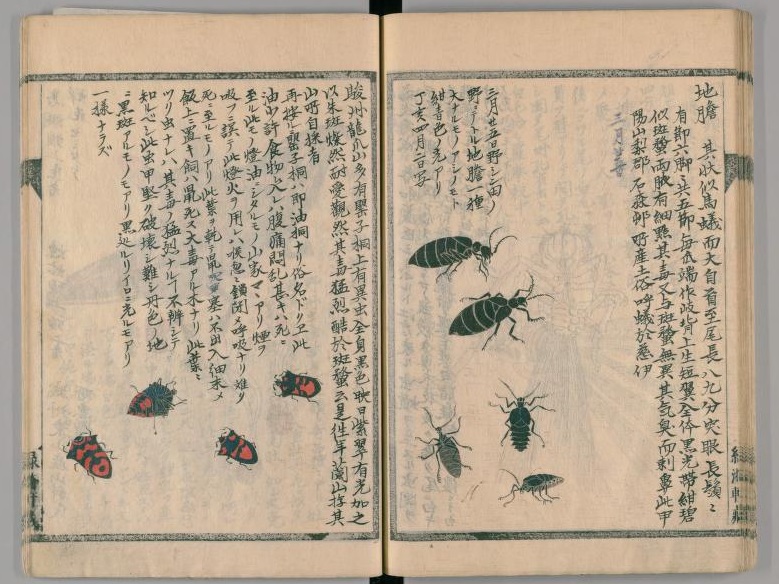 地膽 其狀似馬蟻而大自首至尾長八九分突眼長鬚
有節六脚三共五節每爪端作歧背上生短翼全体黒光帶紺碧
似斑蝥両腋有細點其毒又与斑蝥無異其気臭而刺鼻此甲
陽山梨郡石和邨所産土俗呼蟻於慈伊
三月廿五日
三月廿五日野シ田ノ
野ニテトル地膽一種
大ナルモノアシノモト
紺青色ノ光アリ
丁亥四月二日写
駿州龍爪山多有罌子桐上有異虫全身黒色映日紫翠有光加之
以朱斑燦然耐愛観然其毒猛烈酷於斑蝥云是往年蘭山翁其
山所自採者
再按ニ罌子桐ハ即油桐ナリ俗名ドクヱ此
油少許食物ニ入レハ腹痛悶乱甚キハ死ニ
至ル此モノ燈油ニシタルモノ山家マヽアリ煙ヲ
吸フニ誤テ此燈火ヲ用レハ喉息鎖閉メ呼吸ナリ難ク
死ニ至ルモノアリ此葉ヲ乾シ鼠穴ヲ塞ハ不出入油末メ
飯上ニ置キ飼ハ鼠死ス大毒アル木ナリ此葉ニ
ツク虫ナレハ其毒ノ猛烈ナル丁不辨シテ
知ルベシ此虫甲堅ク破壊シ難シ丹色ノ地
ニ黒斑アルモノモアリ黒
ルリイロニ光ルモアリ
一樣ナラズ